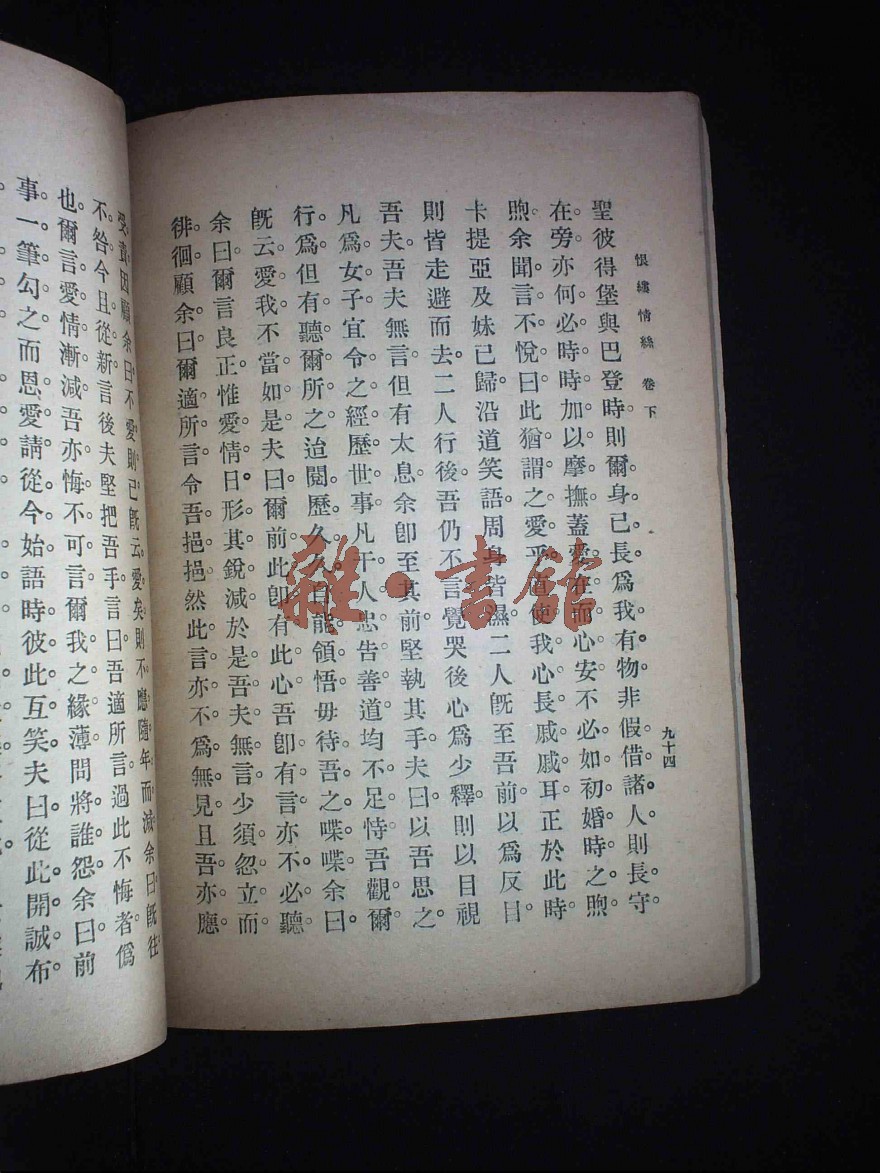 恨縷情絲 卷下
九十四
聖彼得堡與巴登時則爾身已長爲我有物非假借諸人則長守
在旁亦何必時時加以摩撫蓋愛在而心安不必如初婚時之煦
煦余聞言不悅曰此猶謂之愛乎直使我心長戚戚耳正於此時
卡提亞及妹已歸沿道笑語周身皆濕二人旣至吾前以爲反目
則皆走避而去二人行後吾仍不言覺哭後心爲少釋則以目視
吾夫吾夫無言但有太息余卽至其前堅執其手夫曰以吾思之
凡爲女子宜令之經歷世事凡干人忠告善道均不足恃吾觀爾
行爲但有聽爾所之迨閱歷久久自能領悟毋待吾之喋喋余曰
旣云愛我不當如是夫曰爾前此卽有此心吾卽有言亦不必聽
余曰爾言良正惟愛情日形其銳減於是吾夫無言少須忽立而
徘徊顧余曰爾適所言令吾挹挹然此言亦不爲無見且吾亦應
受責因顧余曰不愛則已旣云愛矣則不應隨年而減余曰旣往
不咎今且從新言後夫堅把吾手言曰吾適所言過此不悔者僞
也爾言愛情漸減吾亦悔不可言爾我之緣薄問將誰怨余曰前
事一筆勾之而恩愛請從今始語時彼此互笑夫曰從此開誠布
雜·書館